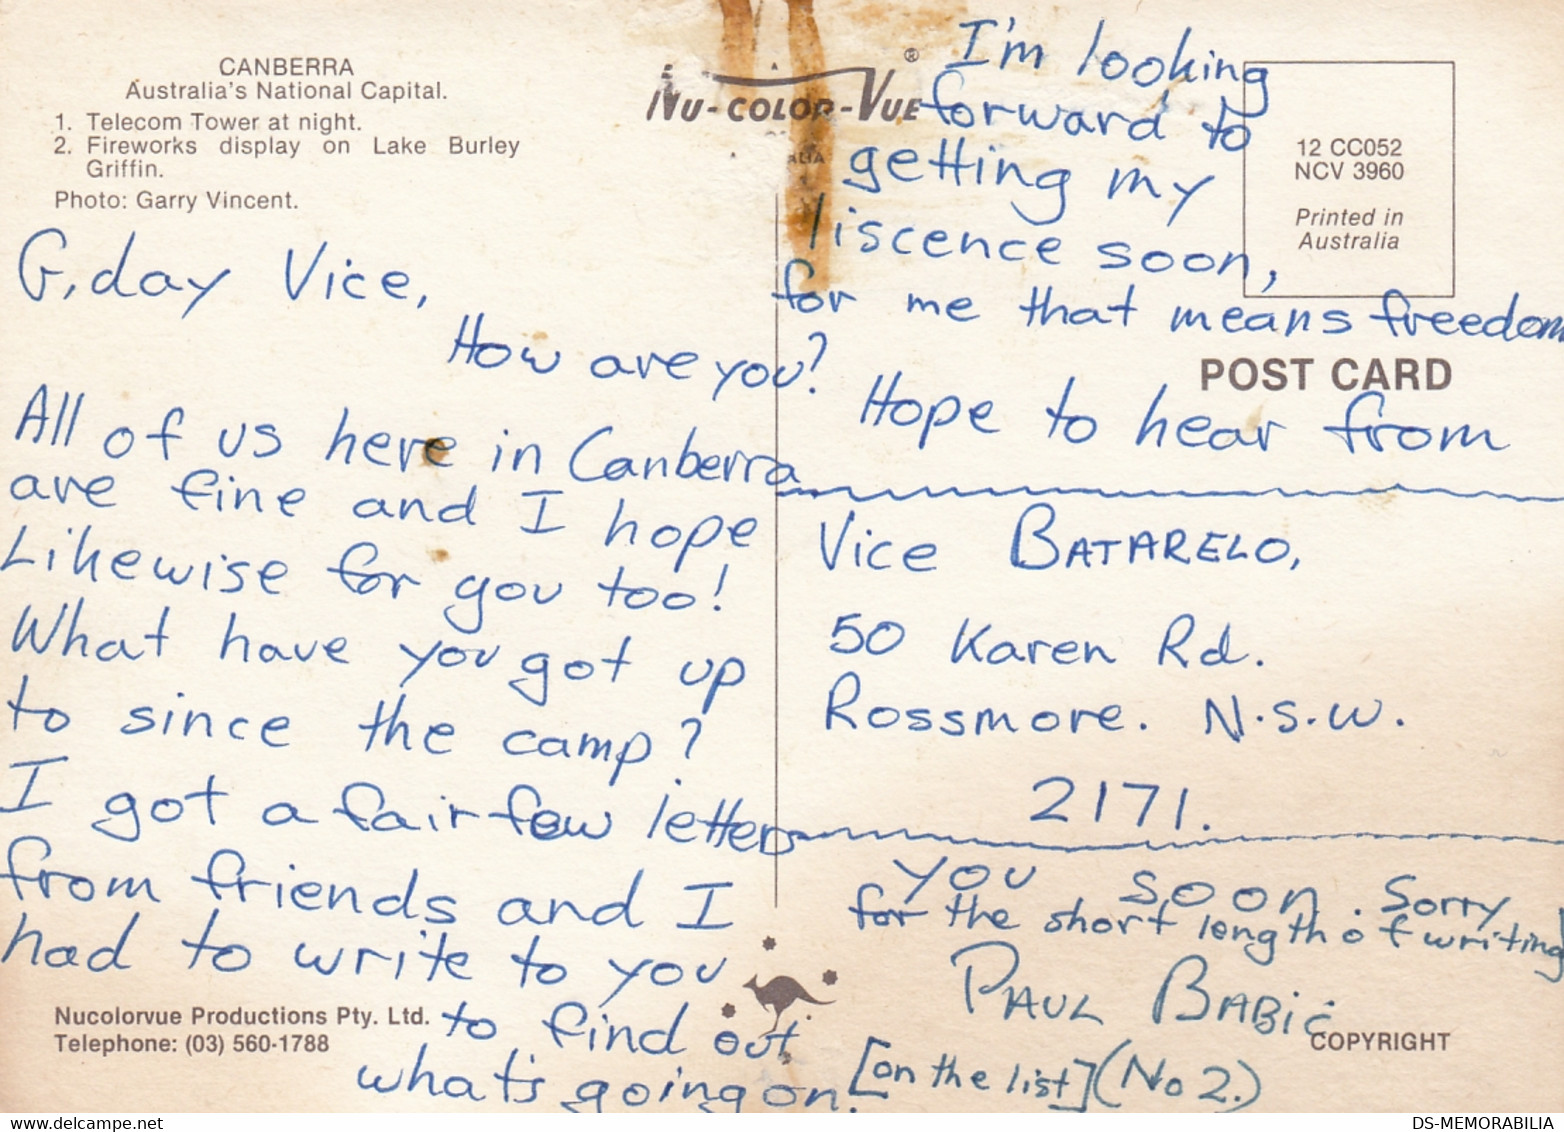 CANBERRA
Australia's National Capital.
1. Telecom Tower at night.
2. Fireworks display on Lake Burley
Griffin.
Photo: Garry Vincent.
NU-COLOR-VUE®
G,day Vice,
How are you?
All of us here in Canberra
are fine and I hope
Likewise for you too!
What have you got up
to since the camp?
I got a fair few letters
from friends and I
had to write to you
to find out
what's going on.
I'm looking
forward to
getting my
liscence soon,
for me that means freedom
Hope to hear from
you soon. Sorry
for the short length of writing!
PAUL BABIĆ
[on the list] (No 2.)
12 CC052
NCV 3960
Printed in
Australia
POST CARD
Vice BATARELO,
50 Karen Rd.
Rossmore. N.S.W.
2171.
Nucolorvue Productions Pty. Ltd.
Telephone: (03) 560-1788
COPYRIGHT
DS-MEMORABILIA